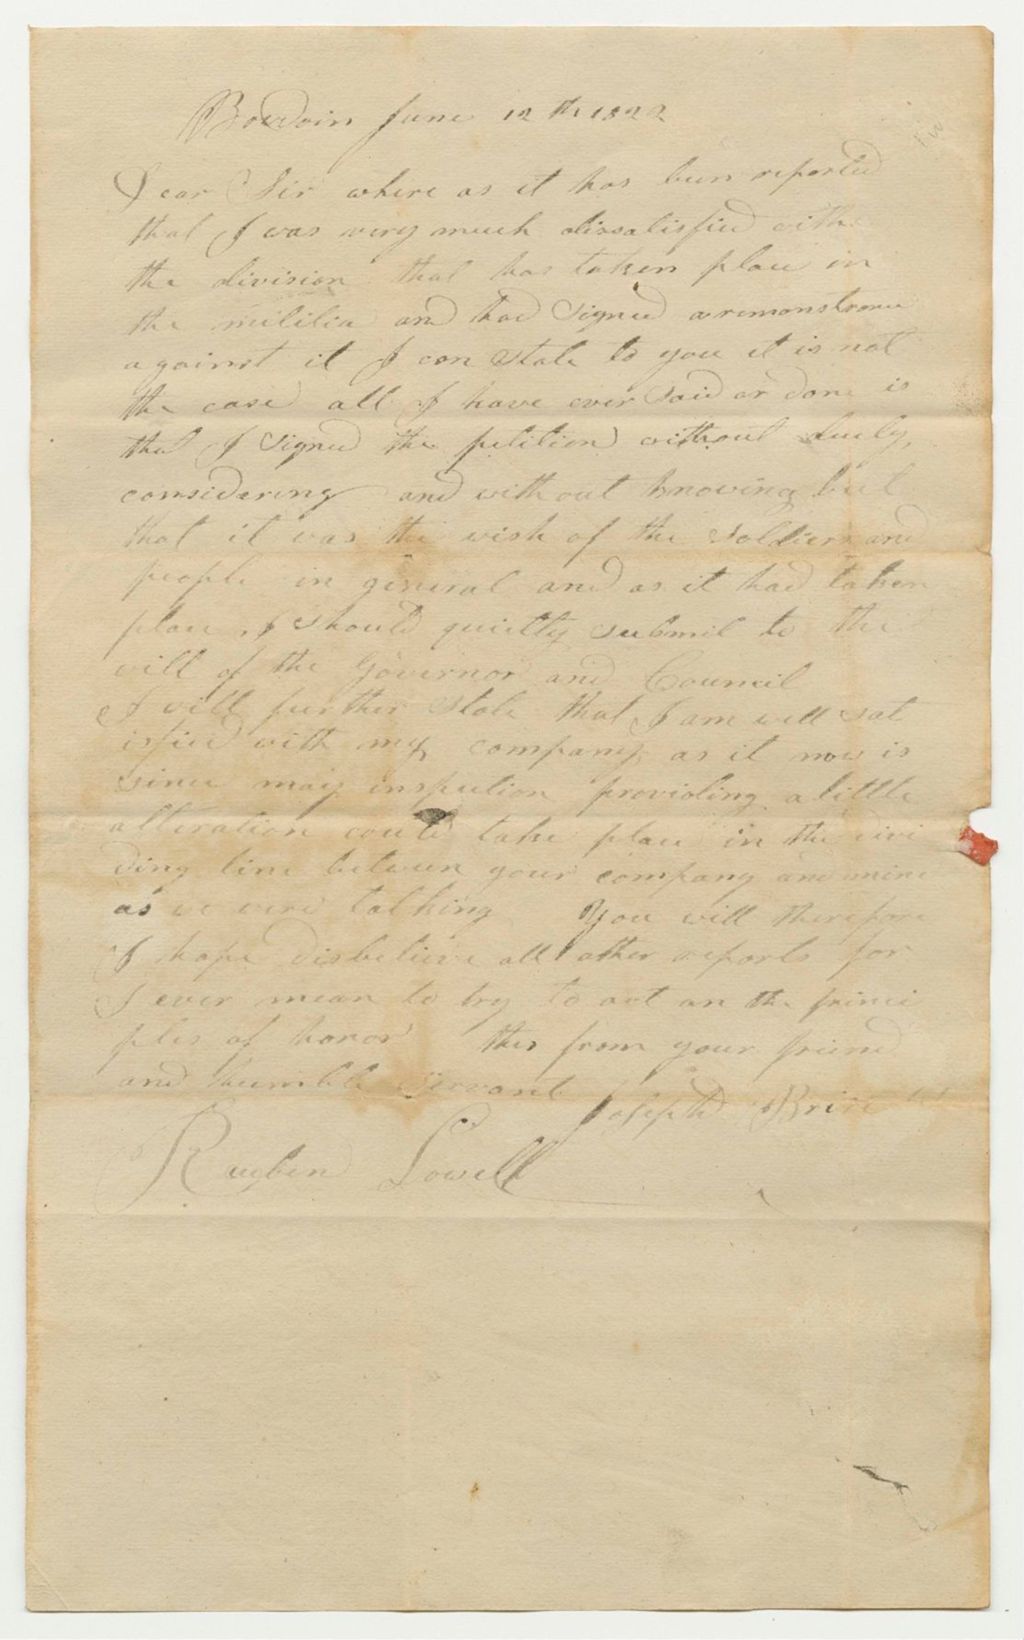 Bowdoin June 12th 1822
Dear Sir where as it has been reported
that I was very much dissatisfied with
the division that has taken place in
the militia and had Signed a remonstrance
against it I can State to you it is not
the case all I have ever Said or done is
that I Signed the petition without duely
considering and without knowing but
that it was the wish of the Soldiers and
people in general and as it had taken
place I should quietly submit to the
will of the Governor and Council
I will further State that I am well sat
isfied with my company as it now is
since may inspection providing a little
alteration could take place in the divi
ding line between your company and mine
as we were talking You will therefore
I hope disbelieve all other reports for
I ever mean to try to act on the princi
ples of honor this from your friend
and humble Servant
Joseph
Reuben Lowell